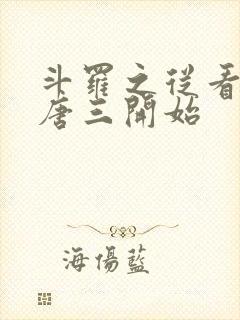 斗羅之從看
唐三開始
海傷藍